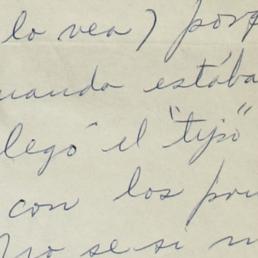 lo vea) porq
uando estába
legó el "tipo"
con los pri
No se si m